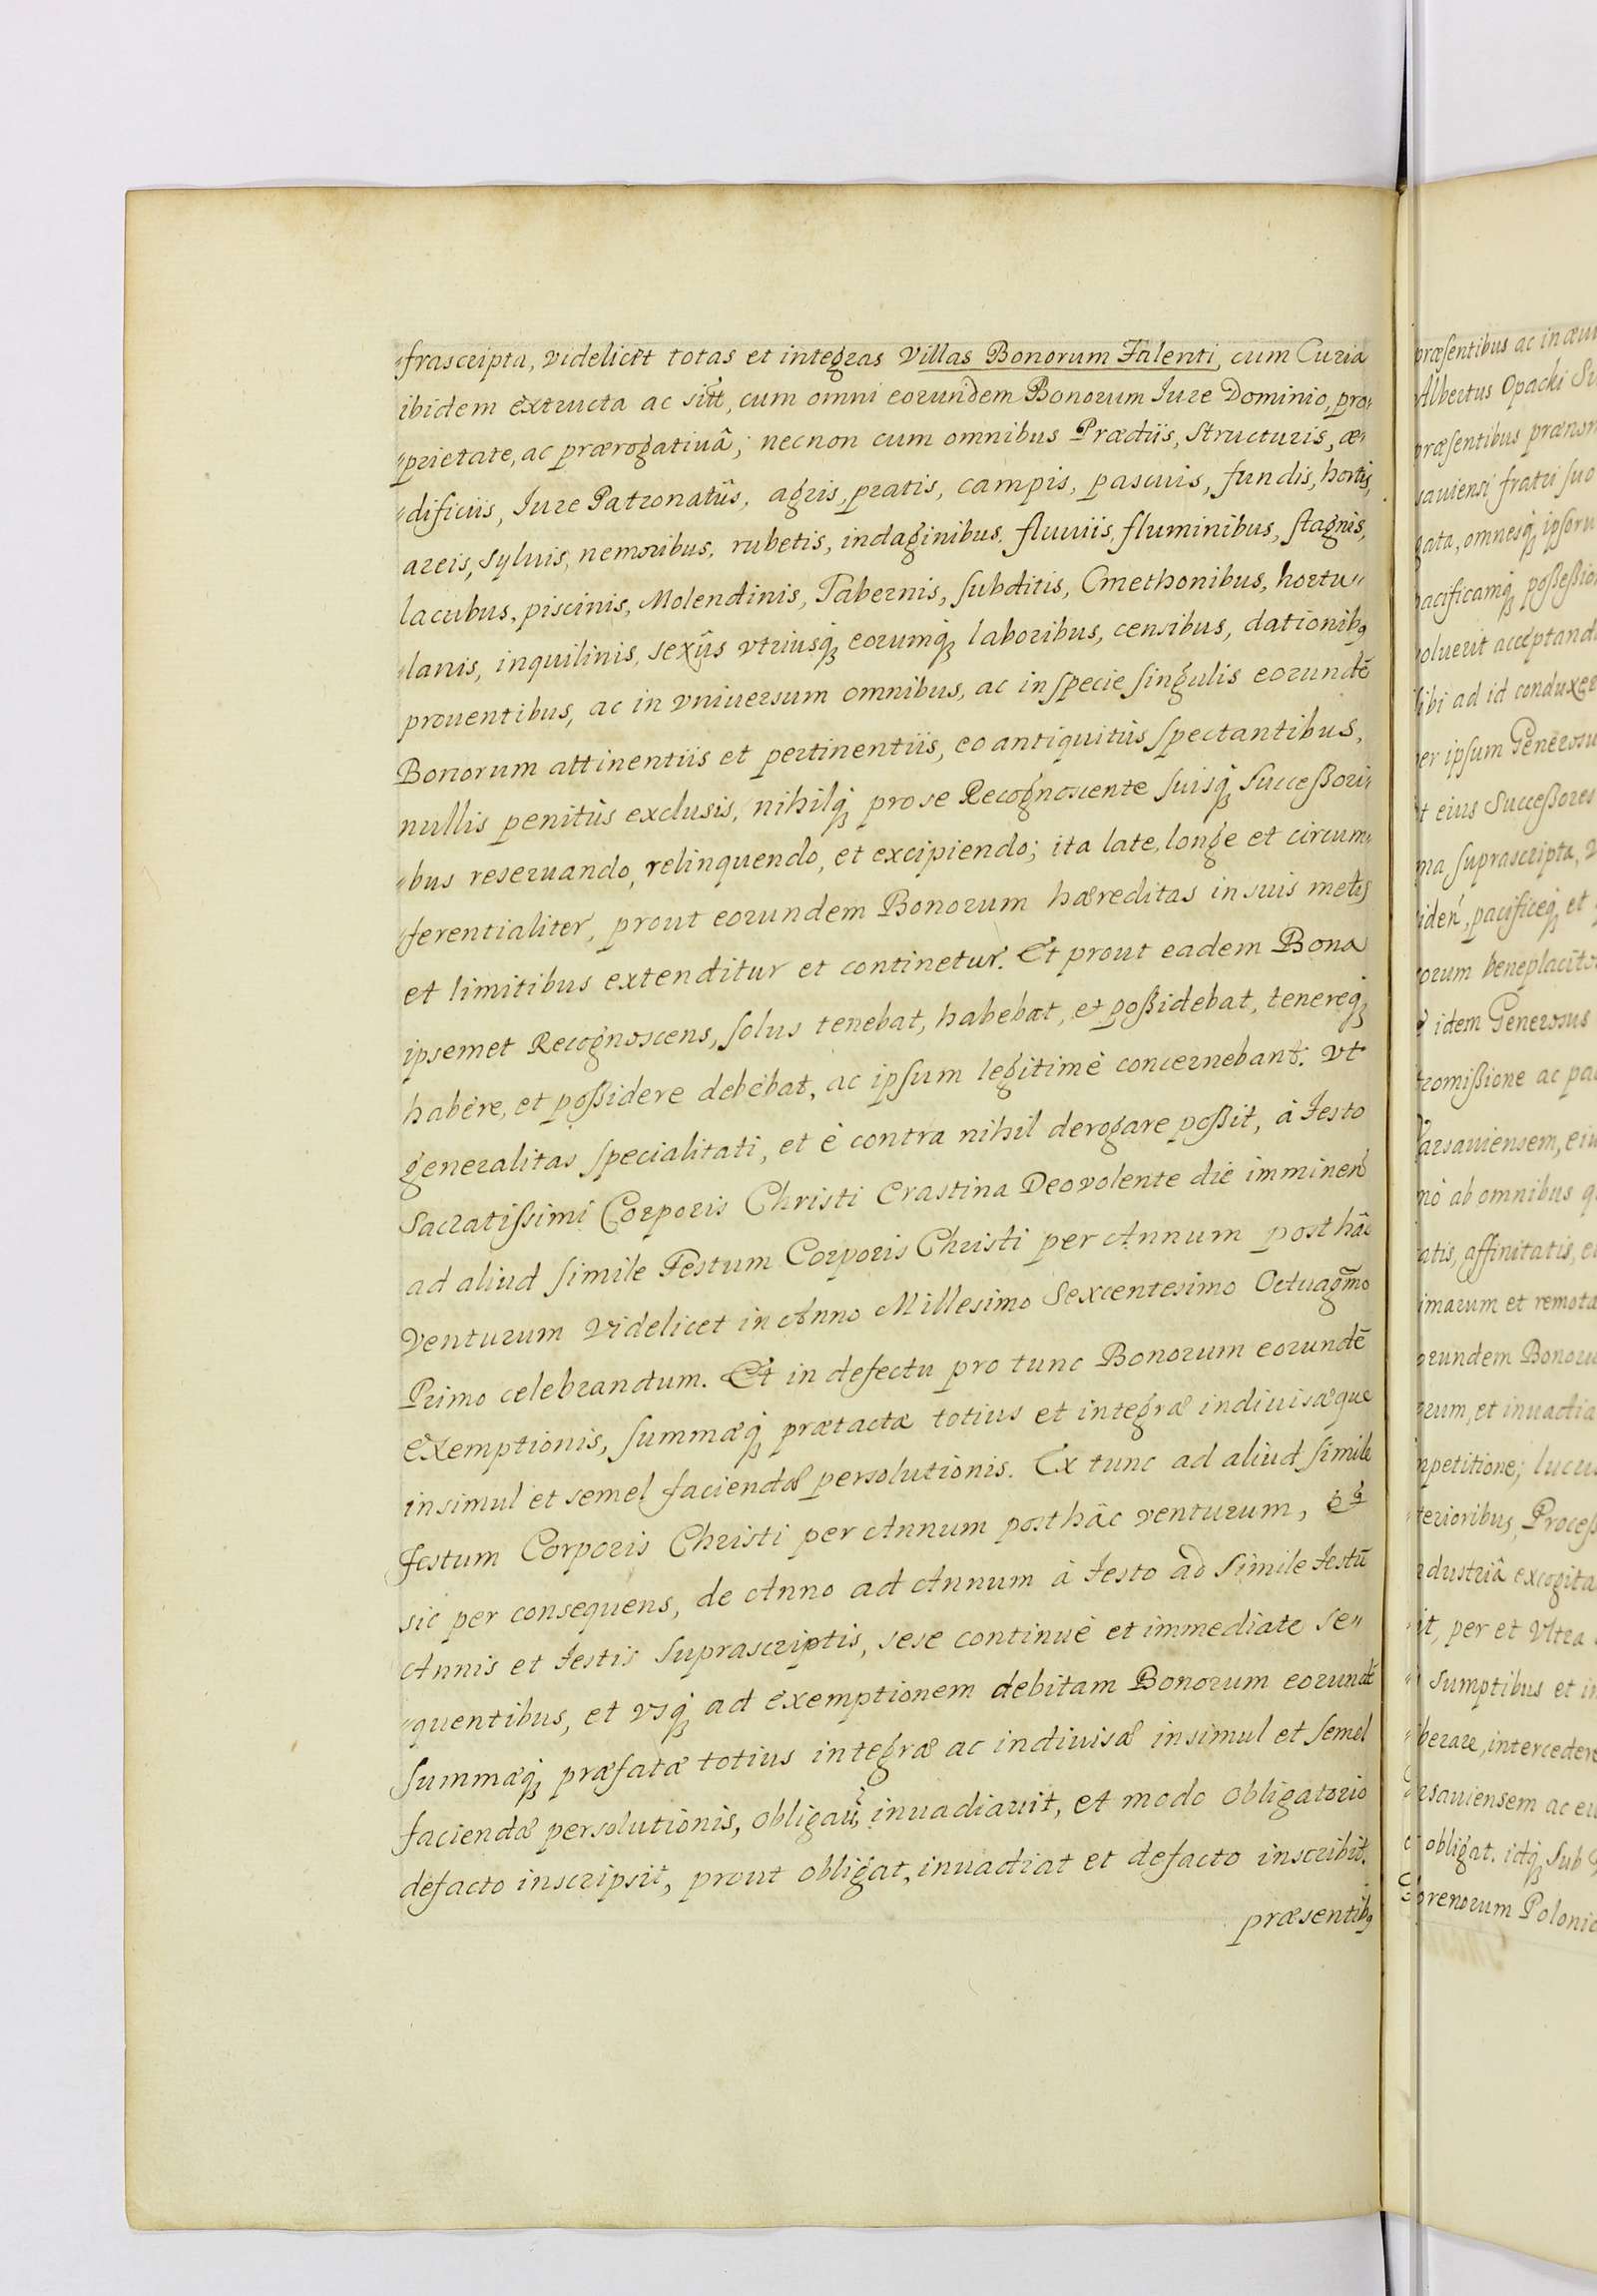 "frascripta, videlicet totas et integras Villas Bonorum Falenti, cum Curia
ibidem extructa ac sitt, cum omni eorundem Bonorum Jure Dominio, pro"
"prietate, ac prærogativâ; necnon cum omnibus Prædiis, structuris, æ"
"dificiis, Jure Patronatûs, agris, pratis, campis, pascuis, fundis, hortis,
areis, sylvis, nemoribus, rubetis, indaginibus. fluviis, fluminibus, stagnis,
lacubus, piscinis, Molendinis, Tabernis, subditis, Cmethonibus, hortu"
"lanis, inquilinis, sexûs vtriusq; eorumq; laboribus, censibus, dationib9
prouentibus, ac in vniuersum omnibus, ac in specie singulis eorundē
Bonorum attinentiis et pertinentiis, eo antiquitùs spectantibus,
nullis penitùs exclusis, nihilq; pro se Recognoscente suisq; Successori"
"bus reseruando, relinquendo, et excipiendo; ita late, longe et circum"
"ferentialiter, prout eorundem Bonorum hæreditas in suis metis
et limitibus extenditur et continetur. Et prout eadem Bona
ipsemet Recognoscens, solus tenebat, habebat, et possidebat, tenereq;
habere, et possidere debebat, ac ipsum legitimè concernebant. Vt
generalitas specialitati, et è contra nihil derogare possit, à Festo
Sacratissimi Corporis Christi Crastina Deo volente die imminen
ad aliud simile Festum Corporis Christi per Annum post hâc
Venturum Videlicet in Anno Millesimo Sexcentesimo Octuagmo
Primo celebrandum. Et in defectu pro tunc Bonorum eorundē
Exemptionis, summæq; prætactæ totius et integræ indiuisæque
insimul et semel faciendæ persolutionis. Ex tunc ad aliud simile
festum Corporis Christi per Annum post hâc venturum, Et
sic per consequens, de Anno ad Annum à Festo ad Simile Festū
Annis et Festis Suprascriptis, sese continuè et immediate se"
"quentibus, et vsq; ad exemptionem debitam Bonorum eorundē
Summæq; præfatæ totius integræ ac indiuisæ insimul et semel
faciendæ persolutionis, obligauit, inuadiavit, et modo obligatorio
defacto inscripsit, prout obligat, inuadiat et defacto inscribit.
præsentib9
præsentibus ac in
Albertus Opacki
præsentibus
sauiensi fratri suo
omnesq;
pacificamq;
acceptand
ad id conduxer
ipsum Generosu
eius Successores
suprascripta,
pacificeq; et
beneplacito
idem Generosus
ac
ab omnibus
affinitatis,
et remota
Bonoru
et inuadia
lucu
Process
excogita
per et Vltra
Sumptibus et
intercedere
ac
obligat. idq; sub
Polonic